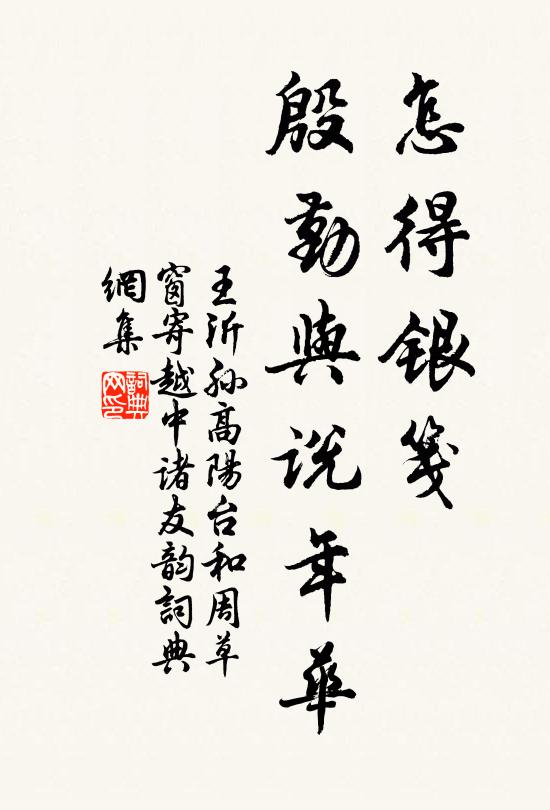 怎得銀箋
殷勤與說年華
王沂孫高陽台和周草
窗寄越中诸友韵詞典
網集
詞典
网印